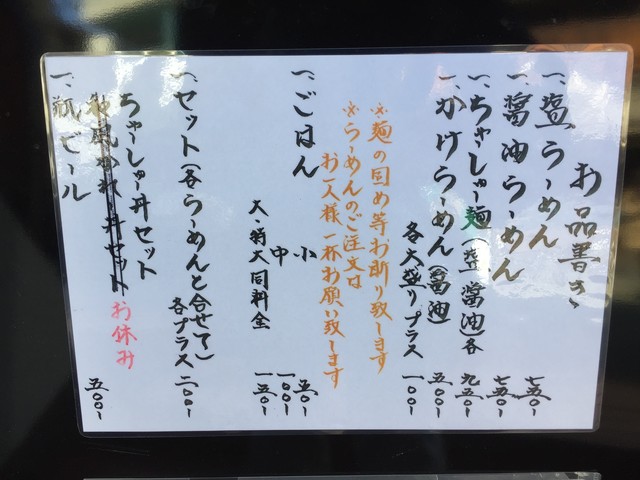 お品書き
一、塩らーめん 七五〇-
一、醤油らーめん 七五〇-
一、ちゃーしゅー麺(塩、醤油)各 九五〇-
一、かけらーめん(醤油) 五〇〇-
各大盛りプラス 一〇〇-
※麺の固め等お断り致します
※らーめんのご注文は
お一人様一杯お願い致します
一、ごはん 小 五〇-
中 一〇〇-
大・特大同料金 一五〇-
一、セット(各らーめんと合せて)
各プラス 二〇〇-
ちゃーしゅー丼セット
和風かれー丼セット お休み
一、瓶ビール 五〇〇-